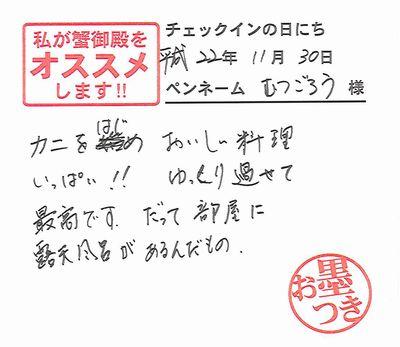 私が蟹御殿を
オススメ
します!!
チェックインの日にち
平成 22年 11月 30日
ペンネーム むつごろう 様
カニをはじめ おいしい料理
いっぱい!! ゆっくり過せて
最高です。だって部屋に
露天風呂があるんだもの。
お墨
つき